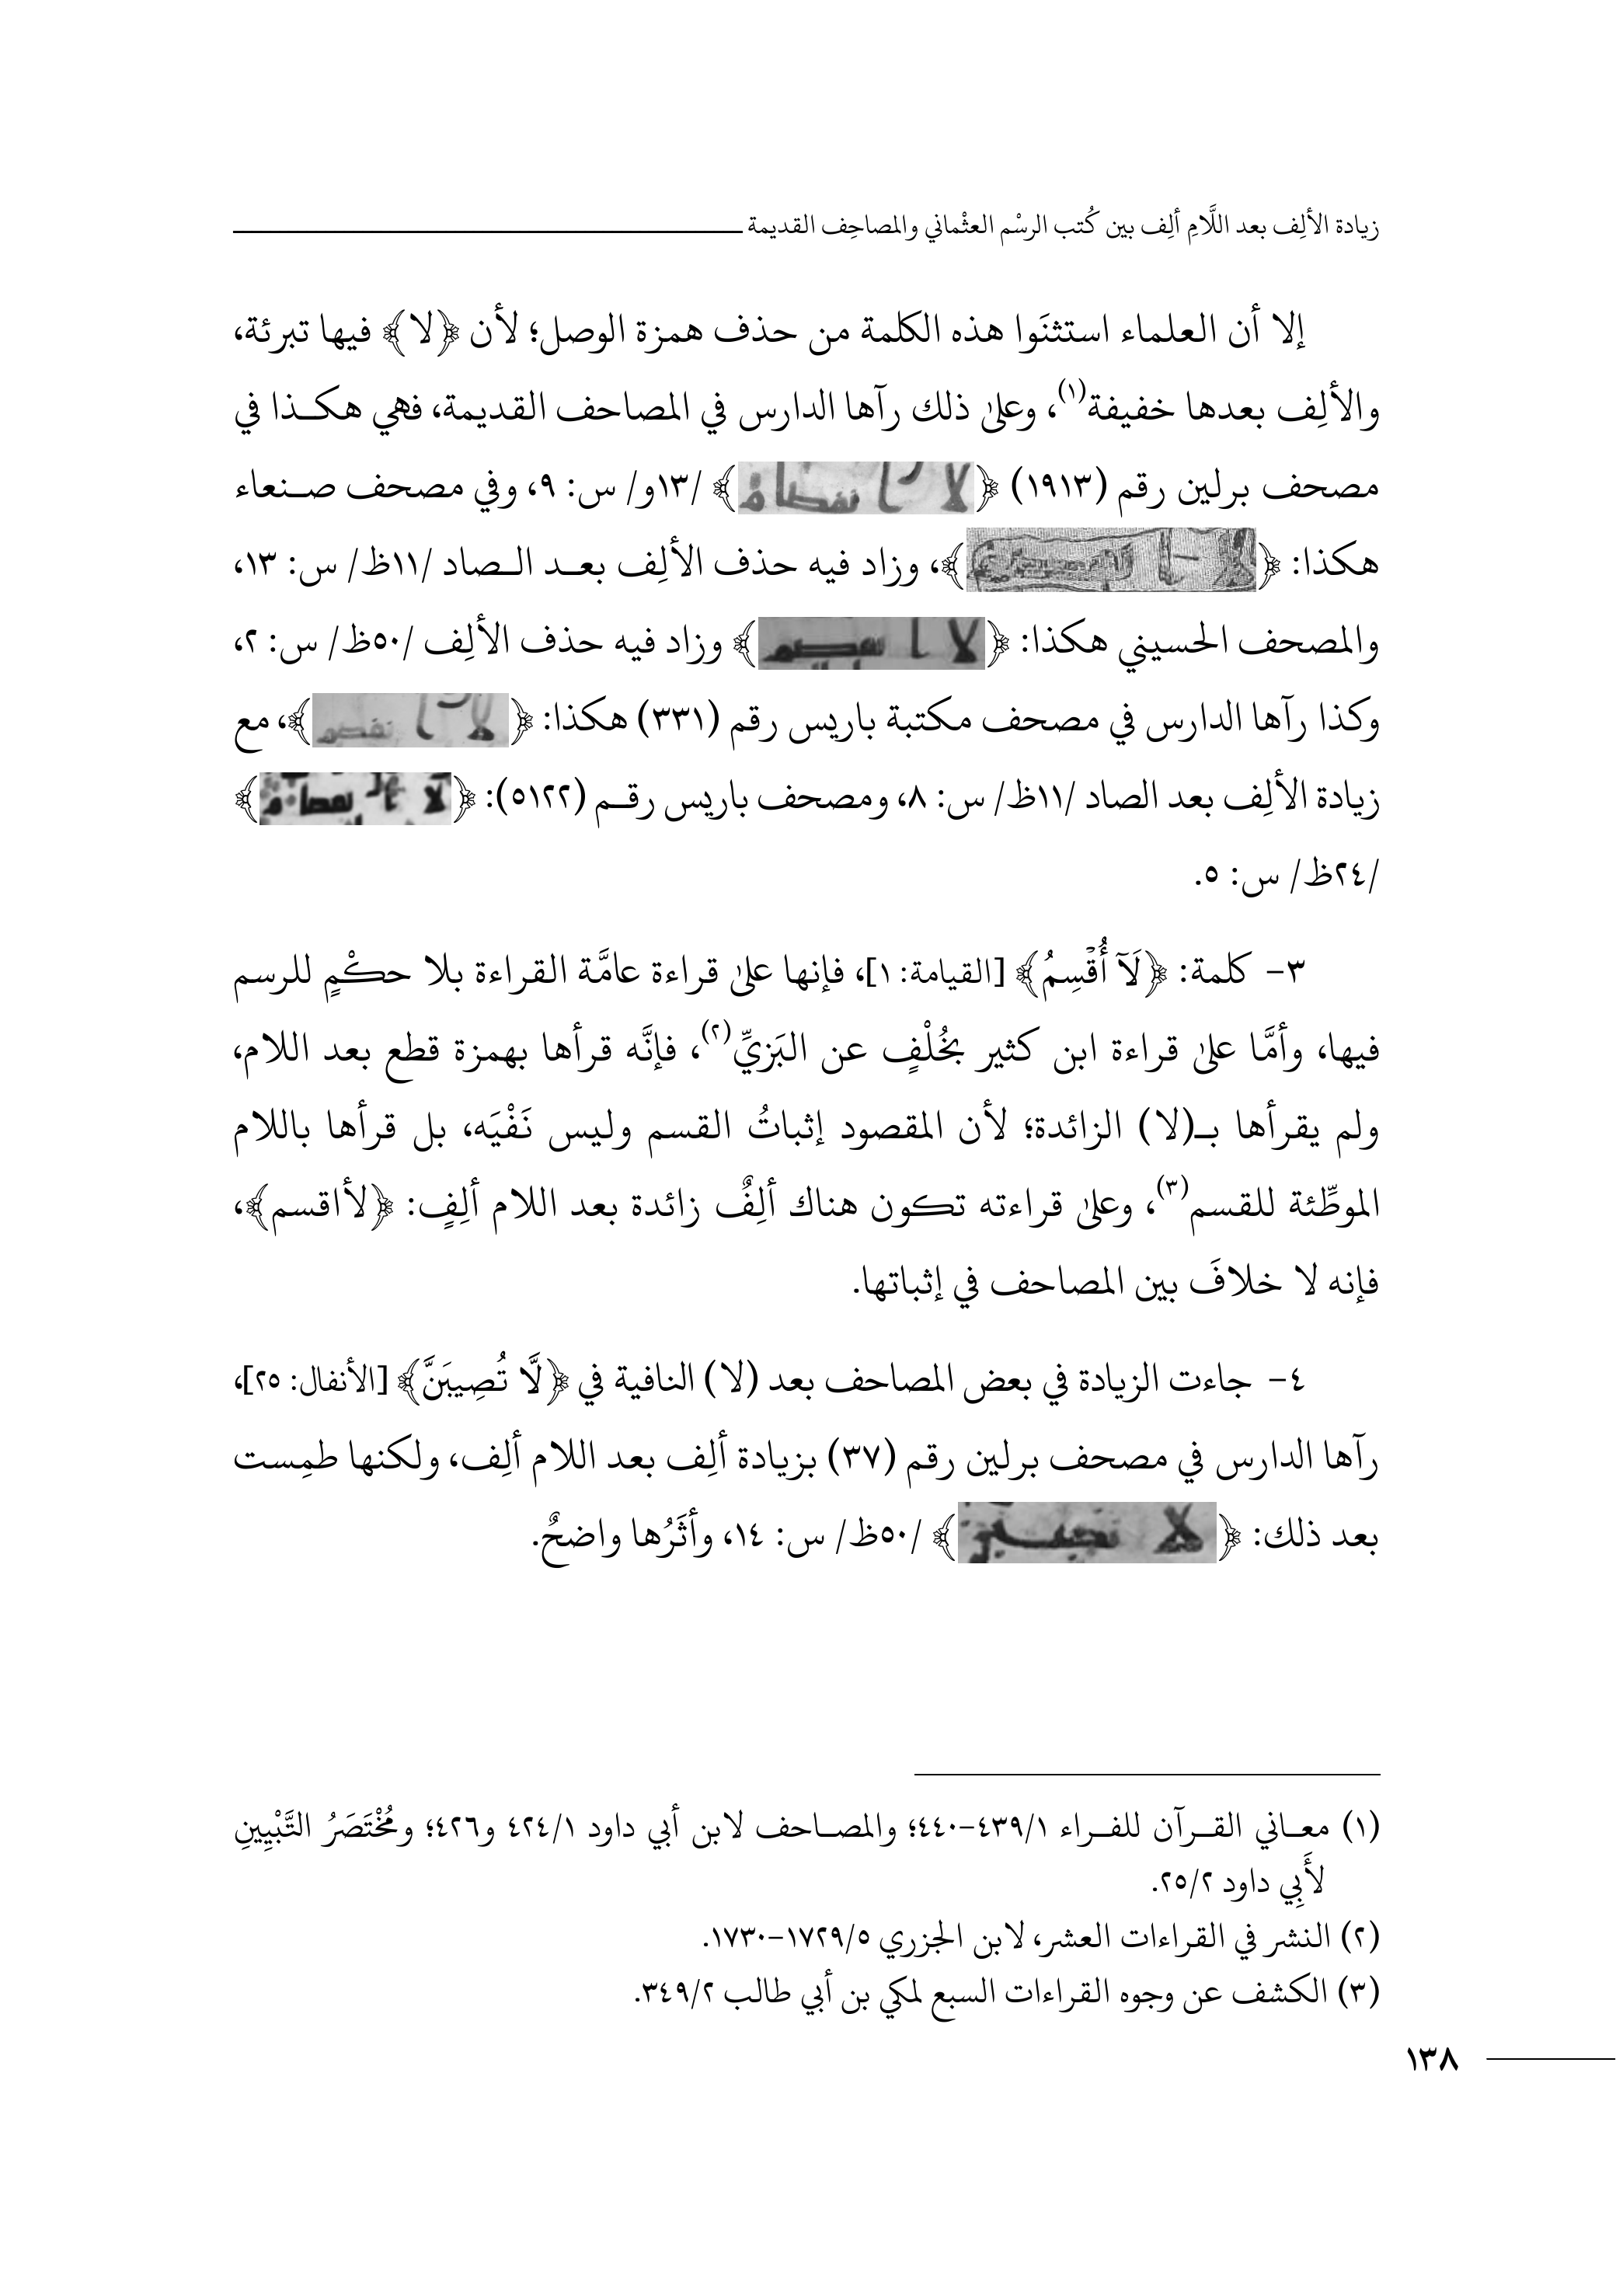 زيادة الألِف بعد اللَّامِ ألِف بين كُتب الرسْم العثْماني والمصاحِف القديمة
إلا أن العلماء استثنَوا هذه الكلمة من حذف همزة الوصل؛ لأن ﴿لا﴾ فيها تبرئة،
والألِف بعدها خفيفة(١)، وعلىٰ ذلك رآها الدارس في المصاحف القديمة، فهي هكـذا في
مصحف برلين رقم (١٩١٣) ﴿لا ا نفصام﴾ /١٣و/ س: ٩، وفي مصحف صـنعاء
هكذا: ﴿﴾، وزاد فيه حذف الألِف بعـد الـصاد /١١ظ/ س: ١٣،
والمصحف الحسيني هكذا: ﴿لا ا نفصم﴾ وزاد فيه حذف الألِف /٥٠ظ/ س: ٢،
وكذا رآها الدارس في مصحف مكتبة باريس رقم (٣٣١) هكذا: ﴿لا ا نفصم﴾، مع
زيادة الألِف بعد الصاد /١١ظ/ س: ٨، ومصحف باريس رقـم (٥١٢٢): ﴿لا ا نفصام﴾
/٢٤ظ/ س: ٥.
٣- كلمة: ﴿لَآ أُقۡسِمُ﴾ [القيامة: ١]، فإنها علىٰ قراءة عامَّة القراءة بلا حكْمٍ للرسم
فيها، وأمَّا علىٰ قراءة ابن كثير بخُلْفٍ عن البَزيِّ(٢)، فإنَّه قرأها بهمزة قطع بعد اللام،
ولم يقرأها بـ(لا) الزائدة؛ لأن المقصود إثباتُ القسم وليس نَفْيَه، بل قرأها باللام
الموطِّئة للقسم(٣)، وعلىٰ قراءته تكون هناك ألِفٌ زائدة بعد اللام ألِفٍ: ﴿لأاقسم﴾،
فإنه لا خلافَ بين المصاحف في إثباتها.
٤- جاءت الزيادة في بعض المصاحف بعد (لا) النافية في ﴿لَّا تُصِيبَنَّ﴾ [الأنفال: ٢٥]،
رآها الدارس في مصحف برلين رقم (٣٧) بزيادة ألِف بعد اللام ألِف، ولكنها طمِست
بعد ذلك: ﴿لا تصيبن﴾ /٥٠ظ/ س: ١٤، وأثَرُها واضحٌ.
(١) معـاني القـرآن للفـراء ٤٣٩/١-٤٤٠؛ والمصـاحف لابن أبي داود ٤٢٤/١ و٤٢٦؛ ومُخْتَصَرُ التَّبْيِينِ
لأَبِي داود ٢٥/٢.
(٢) النشر في القراءات العشر، لابن الجزري ١٧٢٩/٥-١٧٣٠.
(٣) الكشف عن وجوه القراءات السبع لمكي بن أبي طالب ٣٤٩/٢.
١٣٨